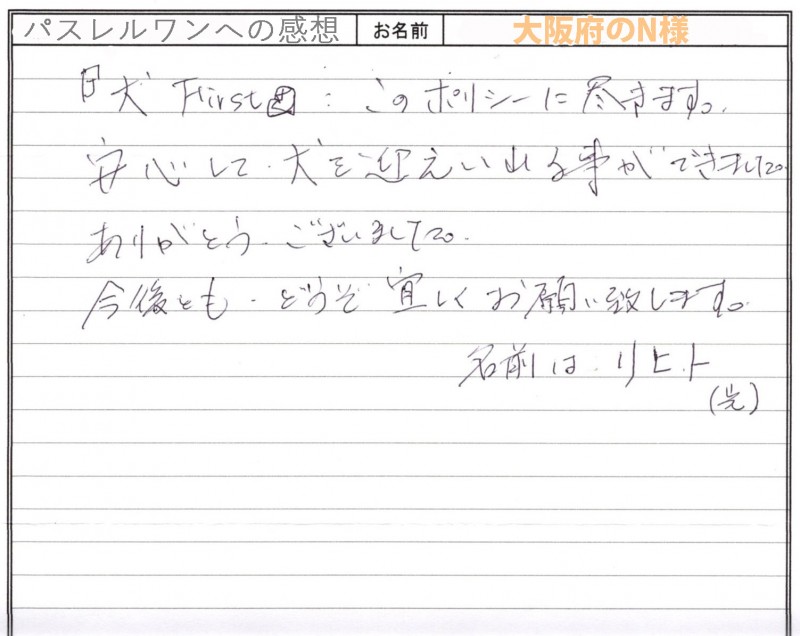 パスレルワンへの感想 お名前 大阪府のN様
『犬First』:このポリシーに尽きます。
安心して、犬を迎えい出る事ができました。
ありがとう、ございました。
今後とも、どうぞ宜しくお願い致します。
名前は、リヒト
(光)